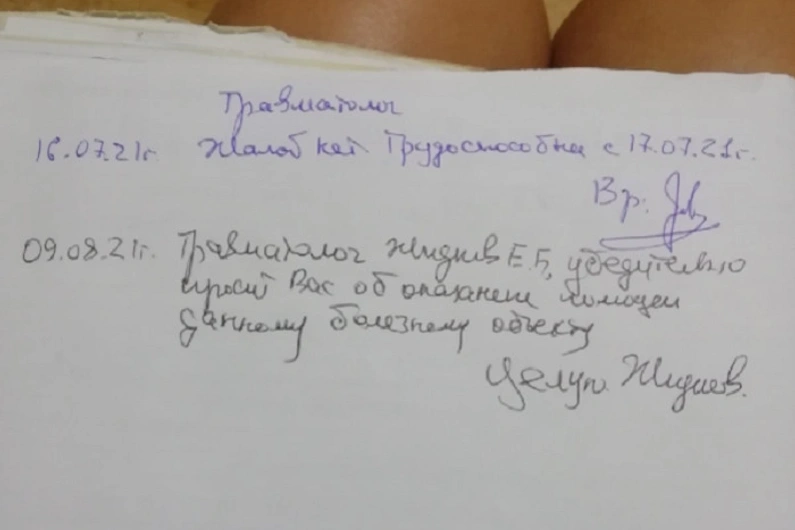 Травматолог
16.07.21г. Жалоб нет Трудоспособна с 17.07.21г.
Вр.
09.08.21г. Травматолог Жиднев Е.Б, убедительно
просит Вас об оказанеи помощеи
данному болезному объекту
Целую. Жиднев.